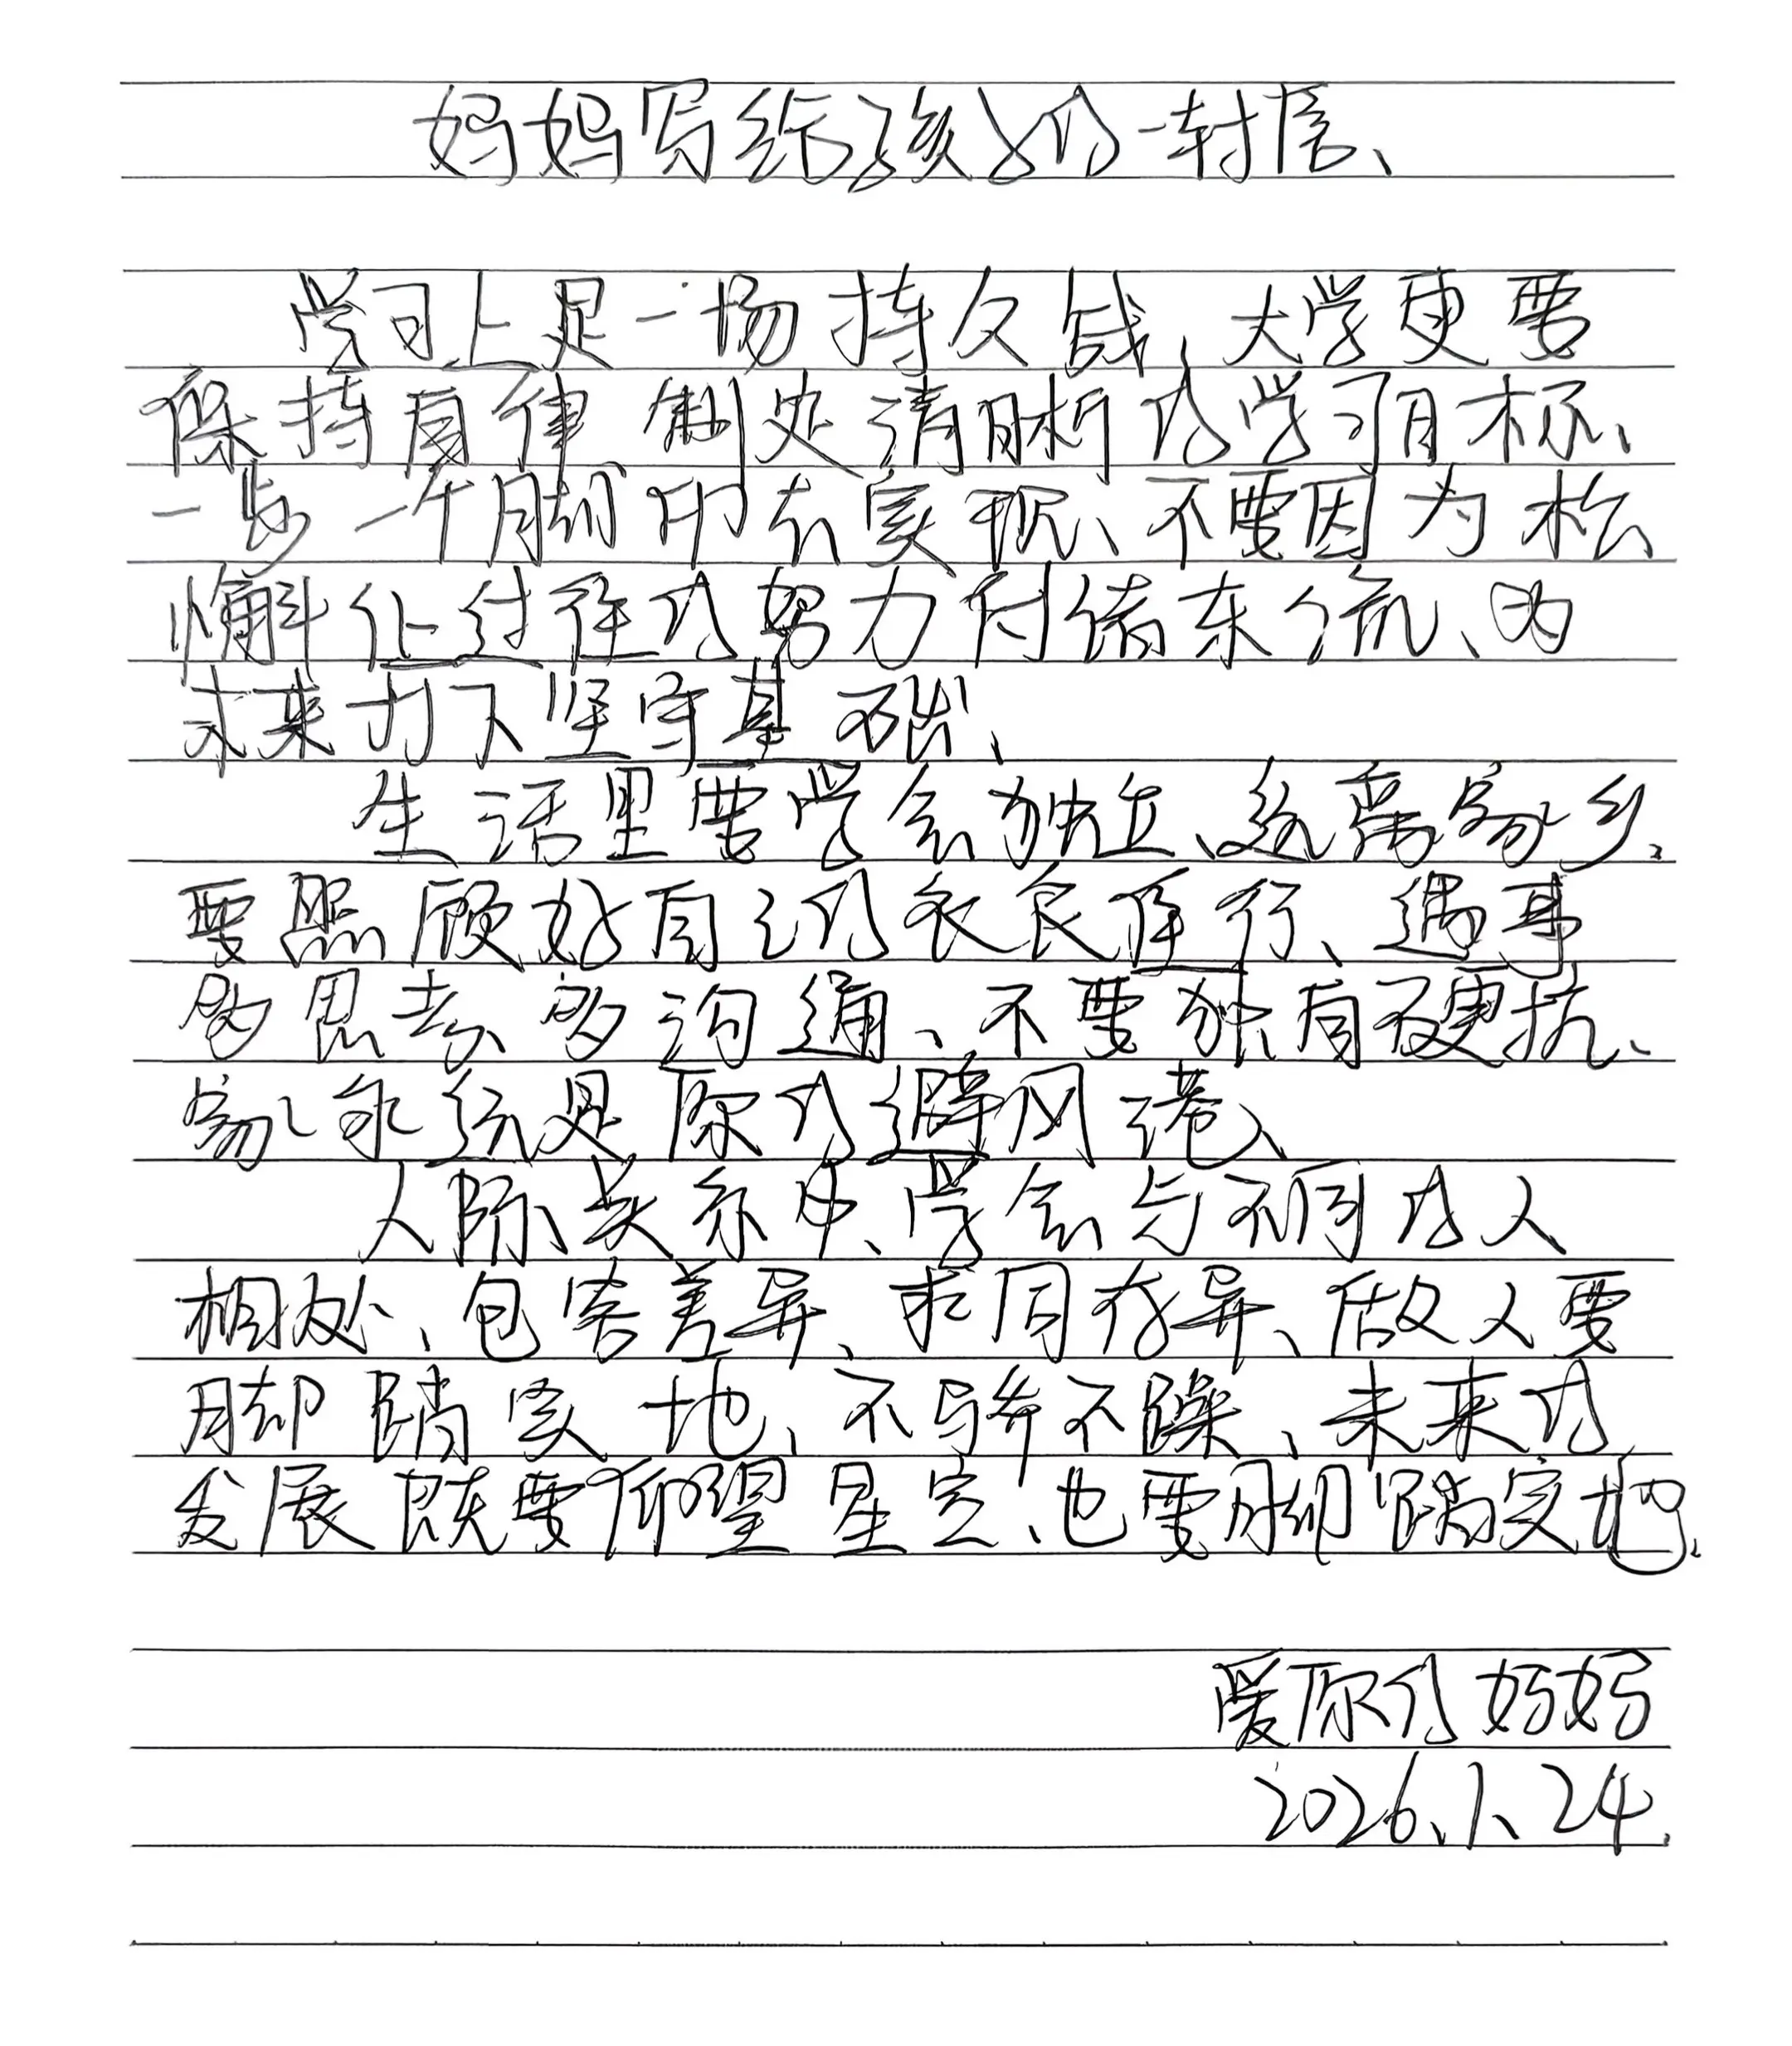 妈妈写给孩子的一封信、
学习上是一场持久战、大学更要
保持自律、制定清晰的学习目标、
一步一个脚印去实现、不要因为松
懈让过往的努力付诸东流、为
未来打下坚守基础、
生活里要学会独立、远离家乡、
要照顾好自己的衣食住行、遇事
多思考多沟通、不要独自硬抗、
家永远是你的避风港、
人际关系中、学会与不同的人
相处、包容差异、求同存异、做人要
脚踏实地、不骄不躁、未来的
发展既要仰望星空、也要脚踏实地、
爱你的妈妈
2026.1.24.